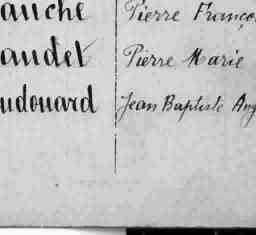 auche Pierre Franço
audet Pierre Marie
udouard Jean Baptiste Aug